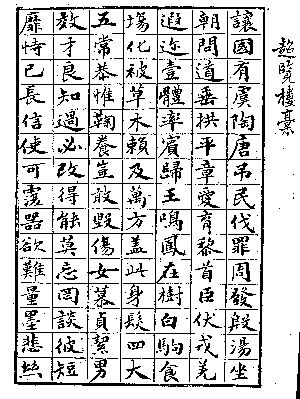 樓藁
讓國有虞陶唐吊民伐罪周發殷湯坐
朝問道垂拱平章愛育黎首臣伏戎羌
遐迩壹體率賓歸王鳴鳳在樹白駒食
場化被草木賴及萬方盖此身髮四大
五常恭惟鞠養豈敢毀傷女慕貞絜男
效才良知過必改得能莫忘罔談彼短
靡恃己長信使可覆器欲難量墨悲絲